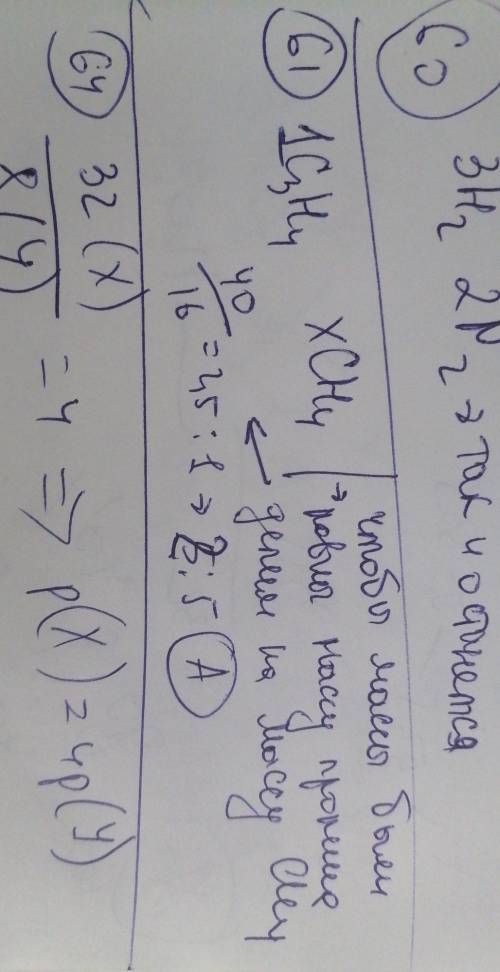 60 3H2 2N2 → так и останется
61 1C3H4 xCH4 | чтобы массы были
→ равны массу пропина
← делим на массу CH4
40/16 = 2,5 : 1 → 2 : 5 А
64 32 (X)/8 (Y) = 4 => p(X) = 4p(Y)